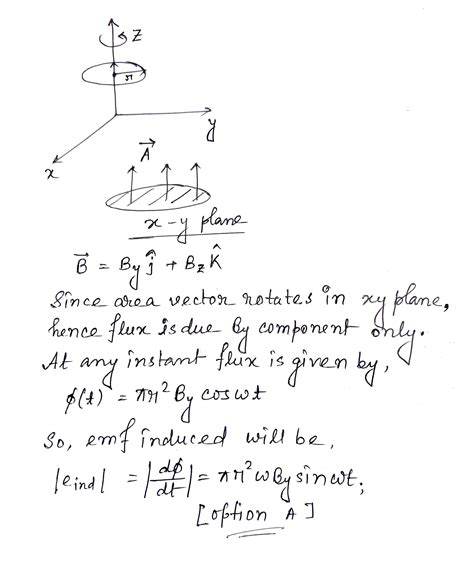 Z
r
y
x
A⃗
x-y plane
B⃗ = By ĵ + Bz K̂
Since area vector rotates in xy plane,
hence flux is due By component only.
At any instant flux is given by,
φ(t) = πr² By cos ωt
So, emf induced will be,
|eind| = |dφ/dt| = πr² ω By sin ωt;
[option A]